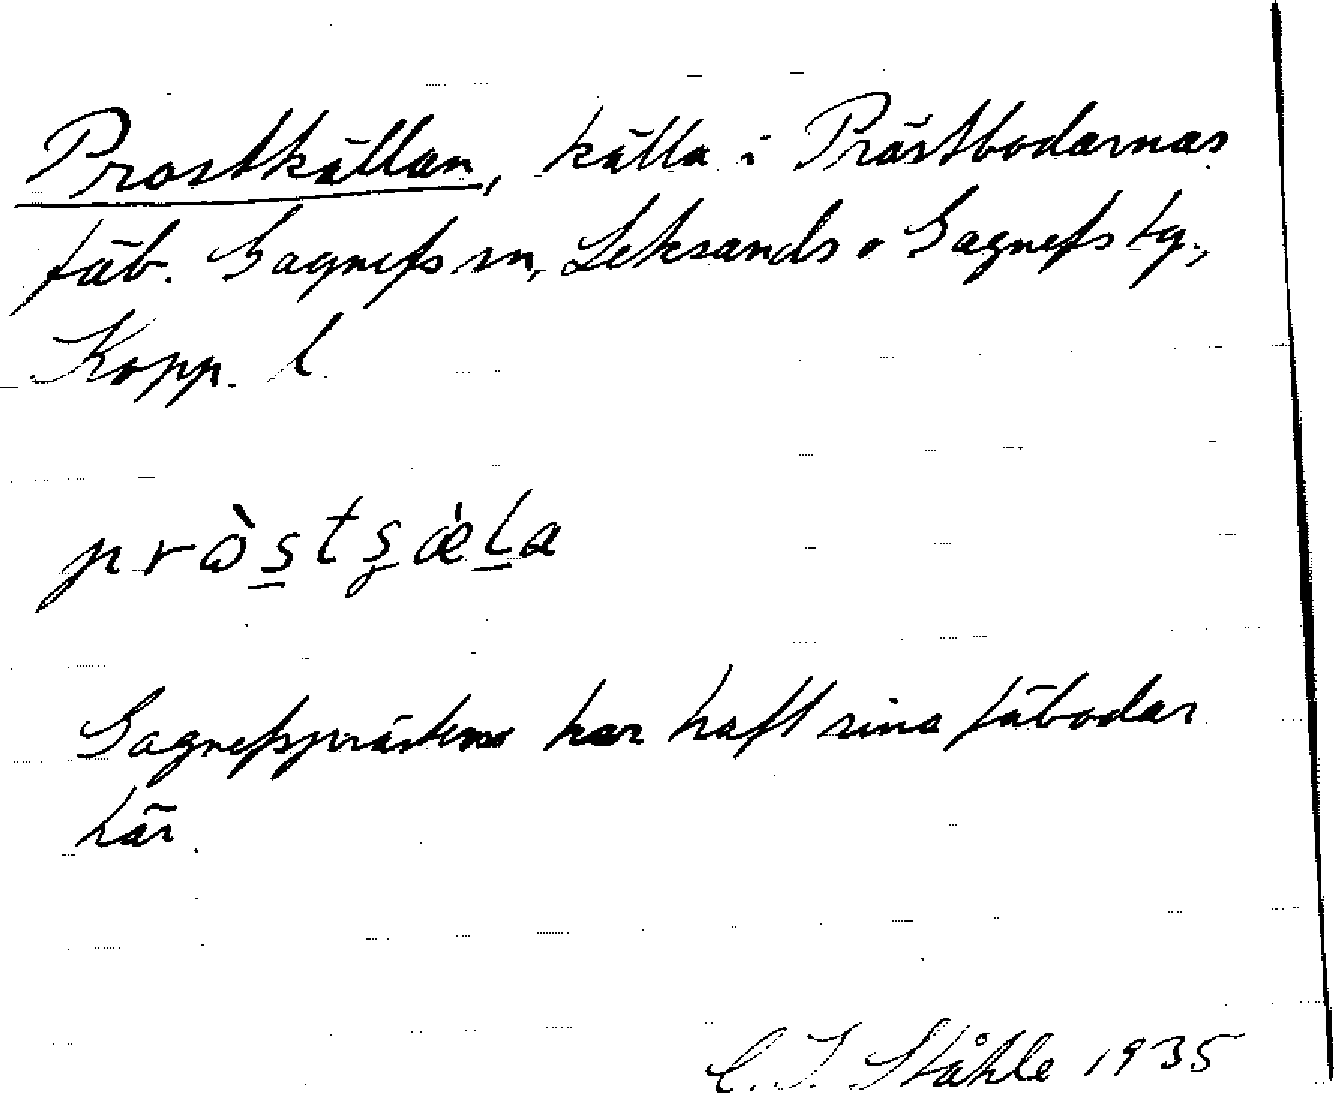 Prostkällan, källa i Prästbodarnas
fäb. Gagnefs sn, Leksands o Gagnefs tg.,
Kopp. l.
pròstʂǽla
Gagnefsprästerna har haft sina fäbodar
här.
C. I. Ståhle 1935